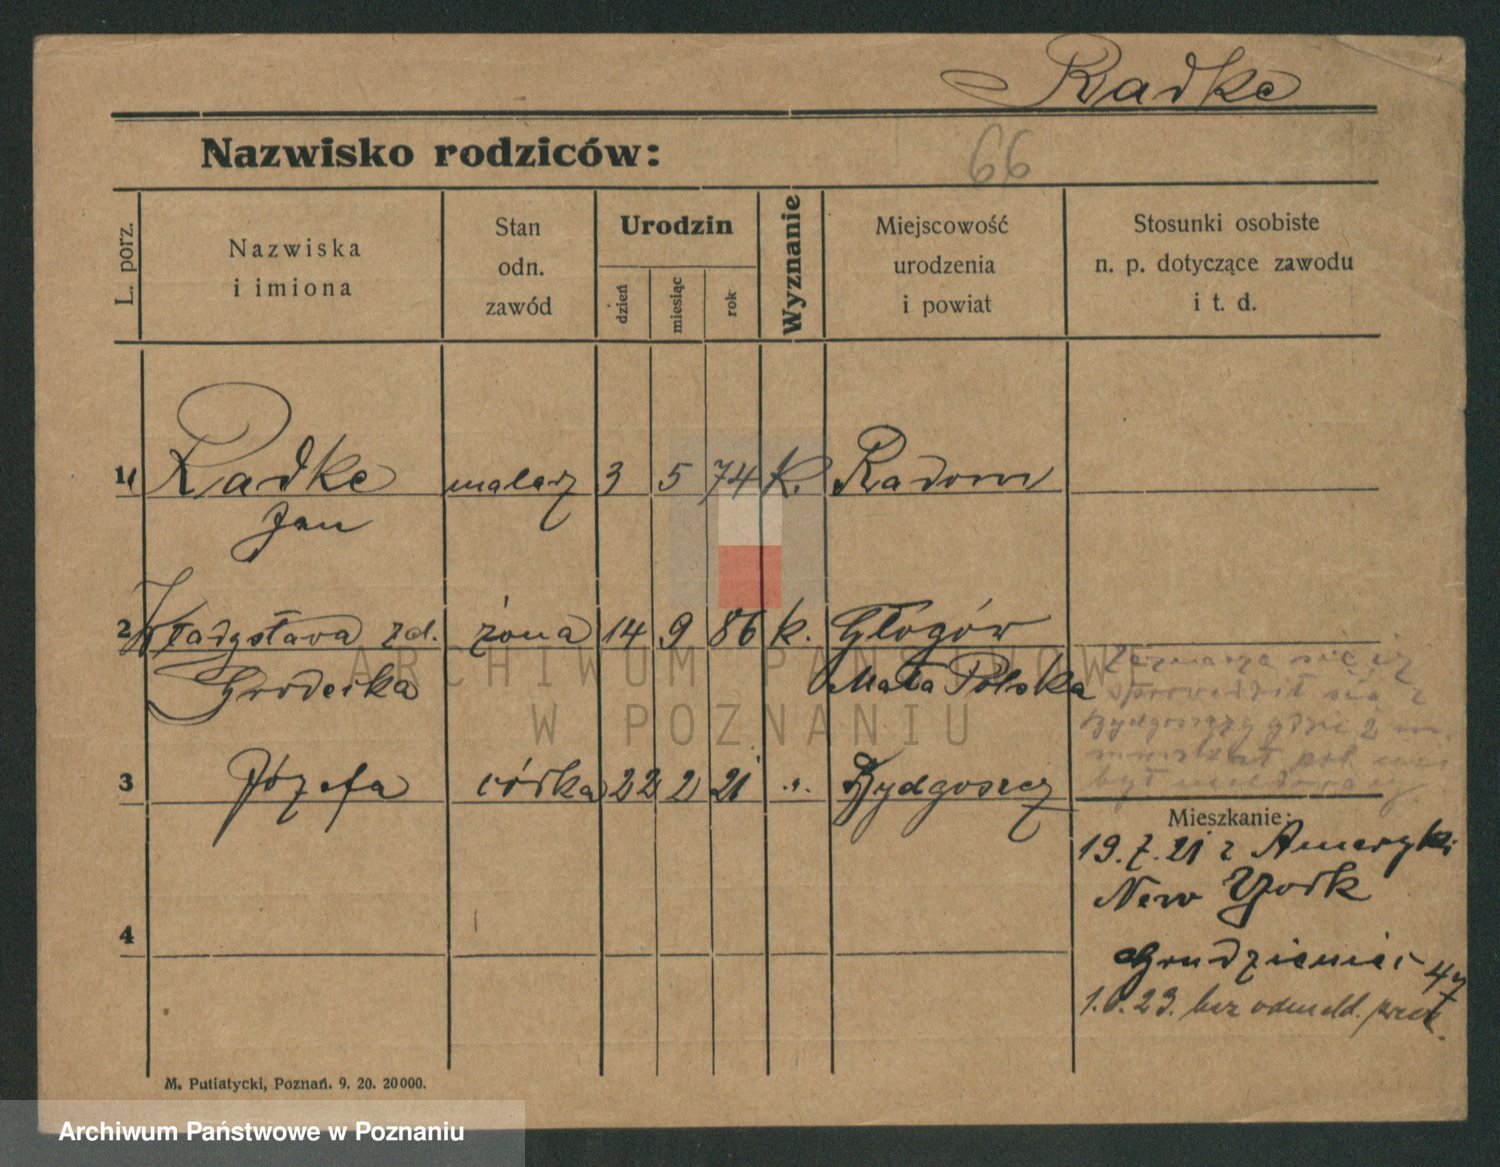 Radke
Nazwisko rodziców:
66
L. porz.
Nazwiska
i imiona
Stan
odn.
zawód
Urodzin
dzień
miesiąc
rok
Wyznanie
Miejscowość
urodzenia
i powiat
Stosunki osobiste
n. p. dotyczące zawodu
i t. d.
1 Radke malarz 3 5 74 k. Radom
Jan
2 Władysława zd. żona 14 9 86 k. Głogów
Grodecka Mała Polska
Zeznaje się iż
sprowadził się z
Bydgoszczy gdzie 2 m.
3 Józefa córka 22 2 21 Bydgoszcz
Mieszkanie:
19.7.21 z Ameryki
New York
Grudzieniec 47
bez odmeld.
4
M. Putiatycki, Poznań. 9. 20. 20000.
ARCHIWUM PAŃSTWOWE
W POZNANIU
Archiwum Państwowe w Poznaniu